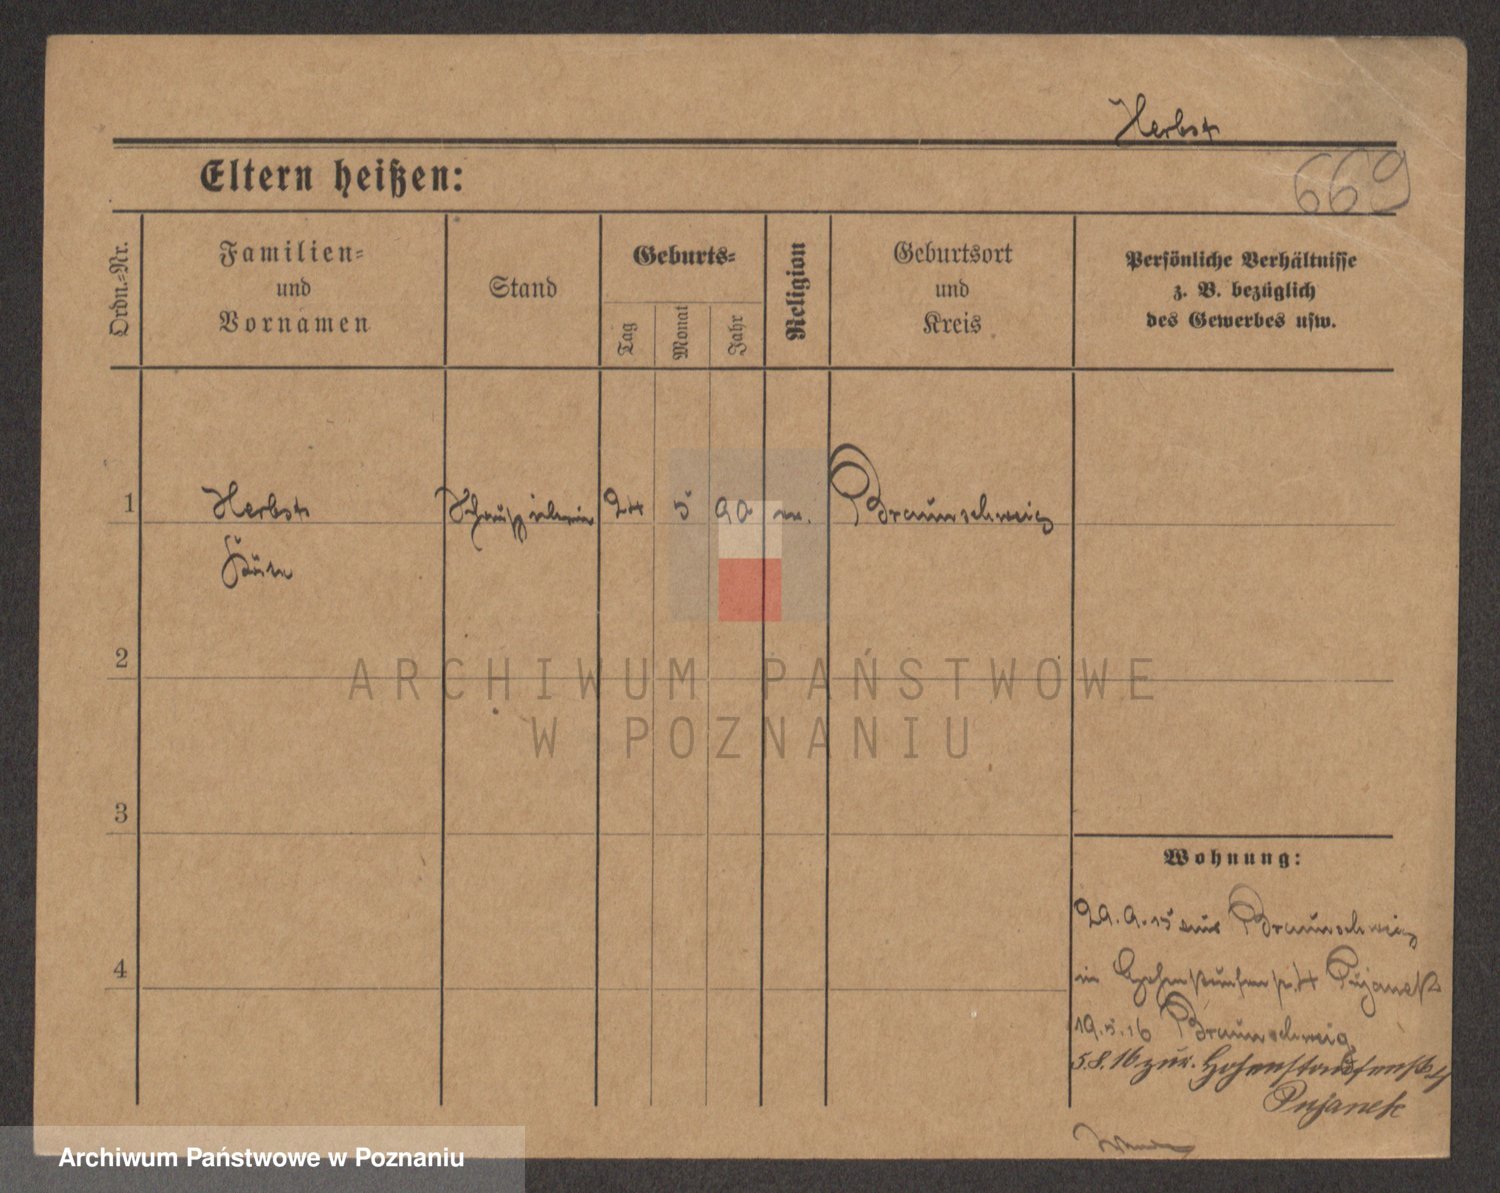 Herbst
669
Eltern heißen:
Ordn.-Nr.
Familien-
und
Vornamen
Stand
Geburts-
Tag
Monat
Jahr
Religion
Geburtsort
und
Kreis
Persönliche Verhältnisse
z. B. bezüglich
des Gewerbes usw.
1
Herbst
Schauspielerin
24
5
90
Braunschweig
2
ARCHIWUM PAŃSTWOWE
W POZNANIU
3
4
Wohnung:
29.9.15 aus Braunschweig
in Hohenstaufenstr. 4 Pujanek
19.5.16 Braunschweig
5.8.16 zur. Hohenstaufenstr. 4
Pujanek
Archiwum Państwowe w Poznaniu